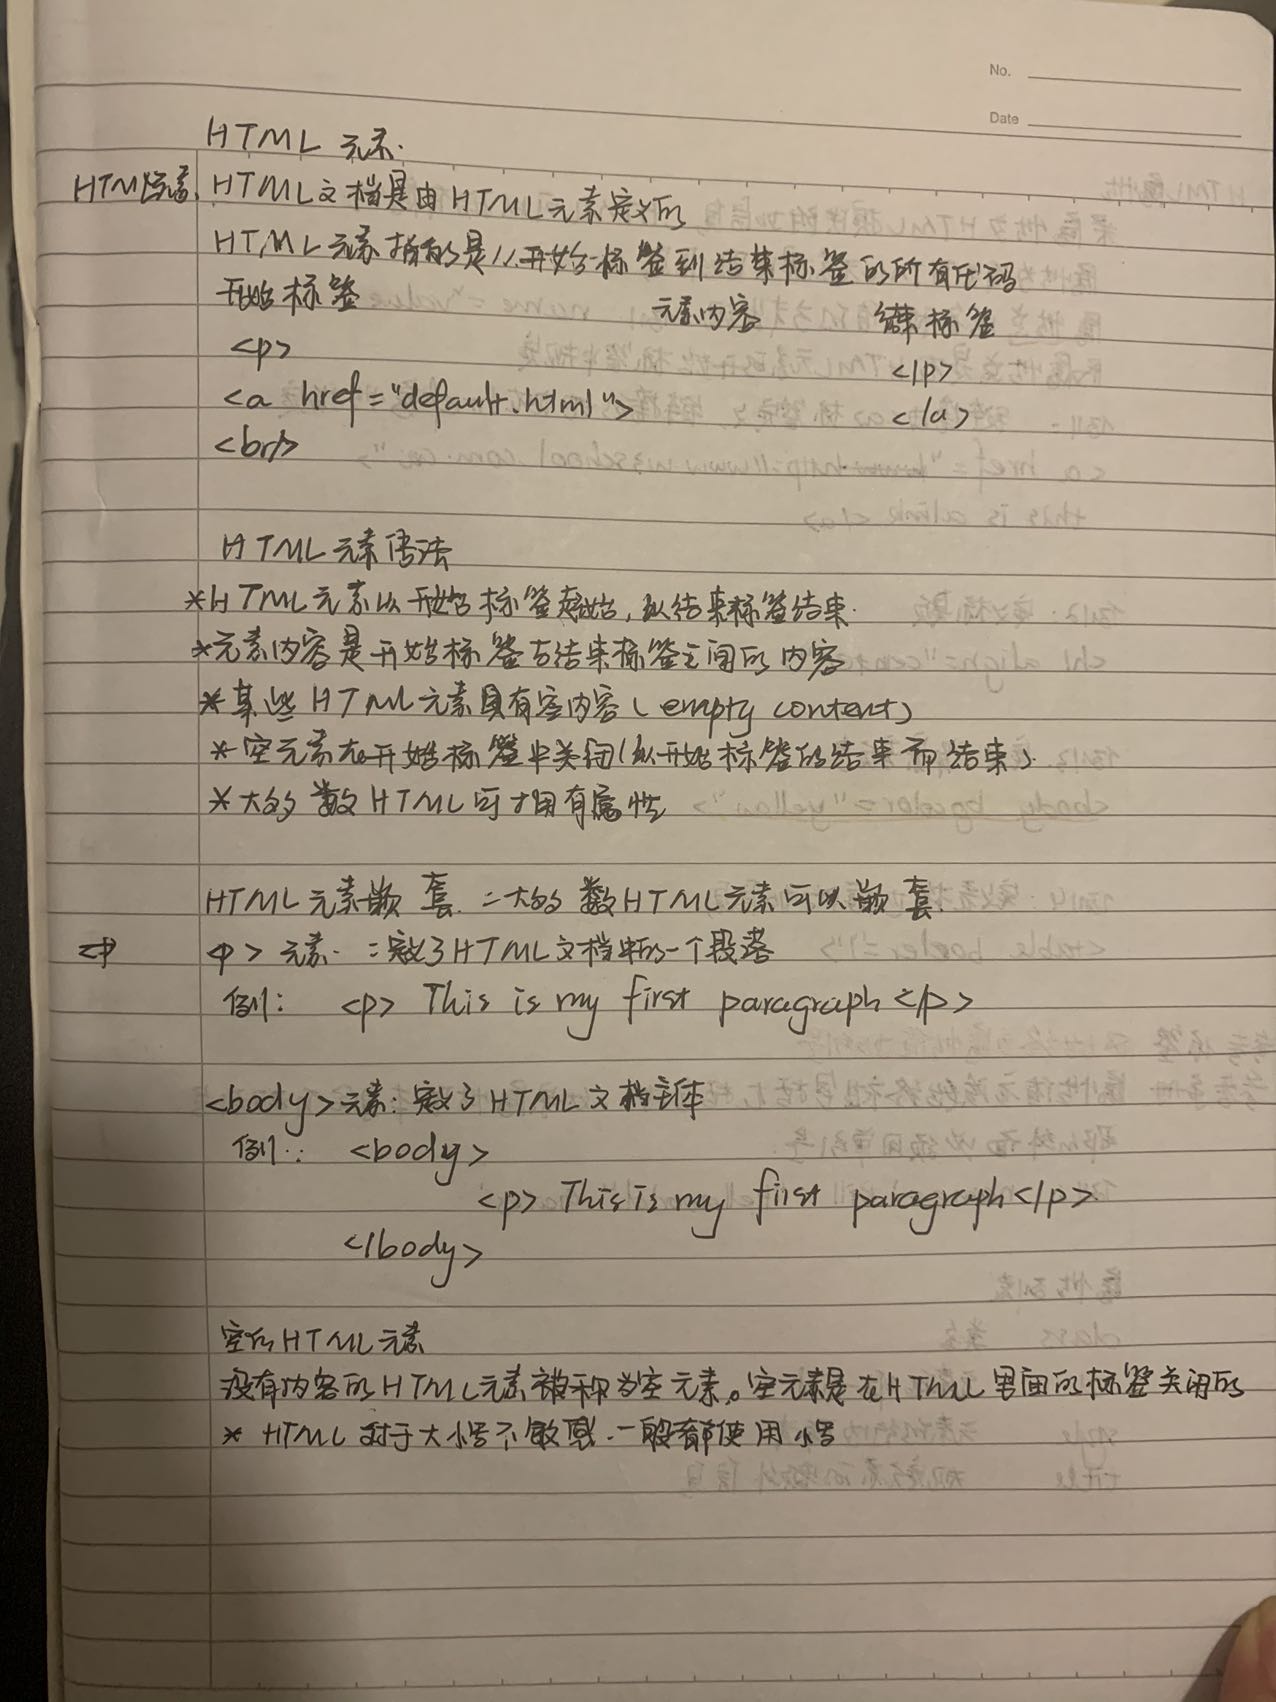 No.
Date
HTML 元素.
HTML元素
HTML文档是由HTML元素定义的
HTML元素指的是从开始标签到结束标签的所有代码
开始标签 元素内容 结束标签
<p> </p>
<a href="default.html"> </a>
<br/>
HTML元素语法
*HTML元素以开始标签起始,以结束标签结束.
*元素内容是开始标签与结束标签之间的内容
*某些HTML元素具有空内容(empty content)
*空元素在开始标签中关闭(以开始标签的结束而结束).
*大多数HTML可拥有属性
HTML元素嵌套.:大多数HTML元素可以嵌套.
<p
<p>元素.:定义了HTML文档中的一个段落
例: <p> This is my first paragraph </p>
<body>元素:定义了HTML文档主体
例: <body>
<p> This is my first paragraph </p>.
</body>
空的HTML元素
没有内容的HTML元素被称为空元素。空元素是在HTML里面的标签关闭的
* HTML对于大小写不敏感.一般都使用小写